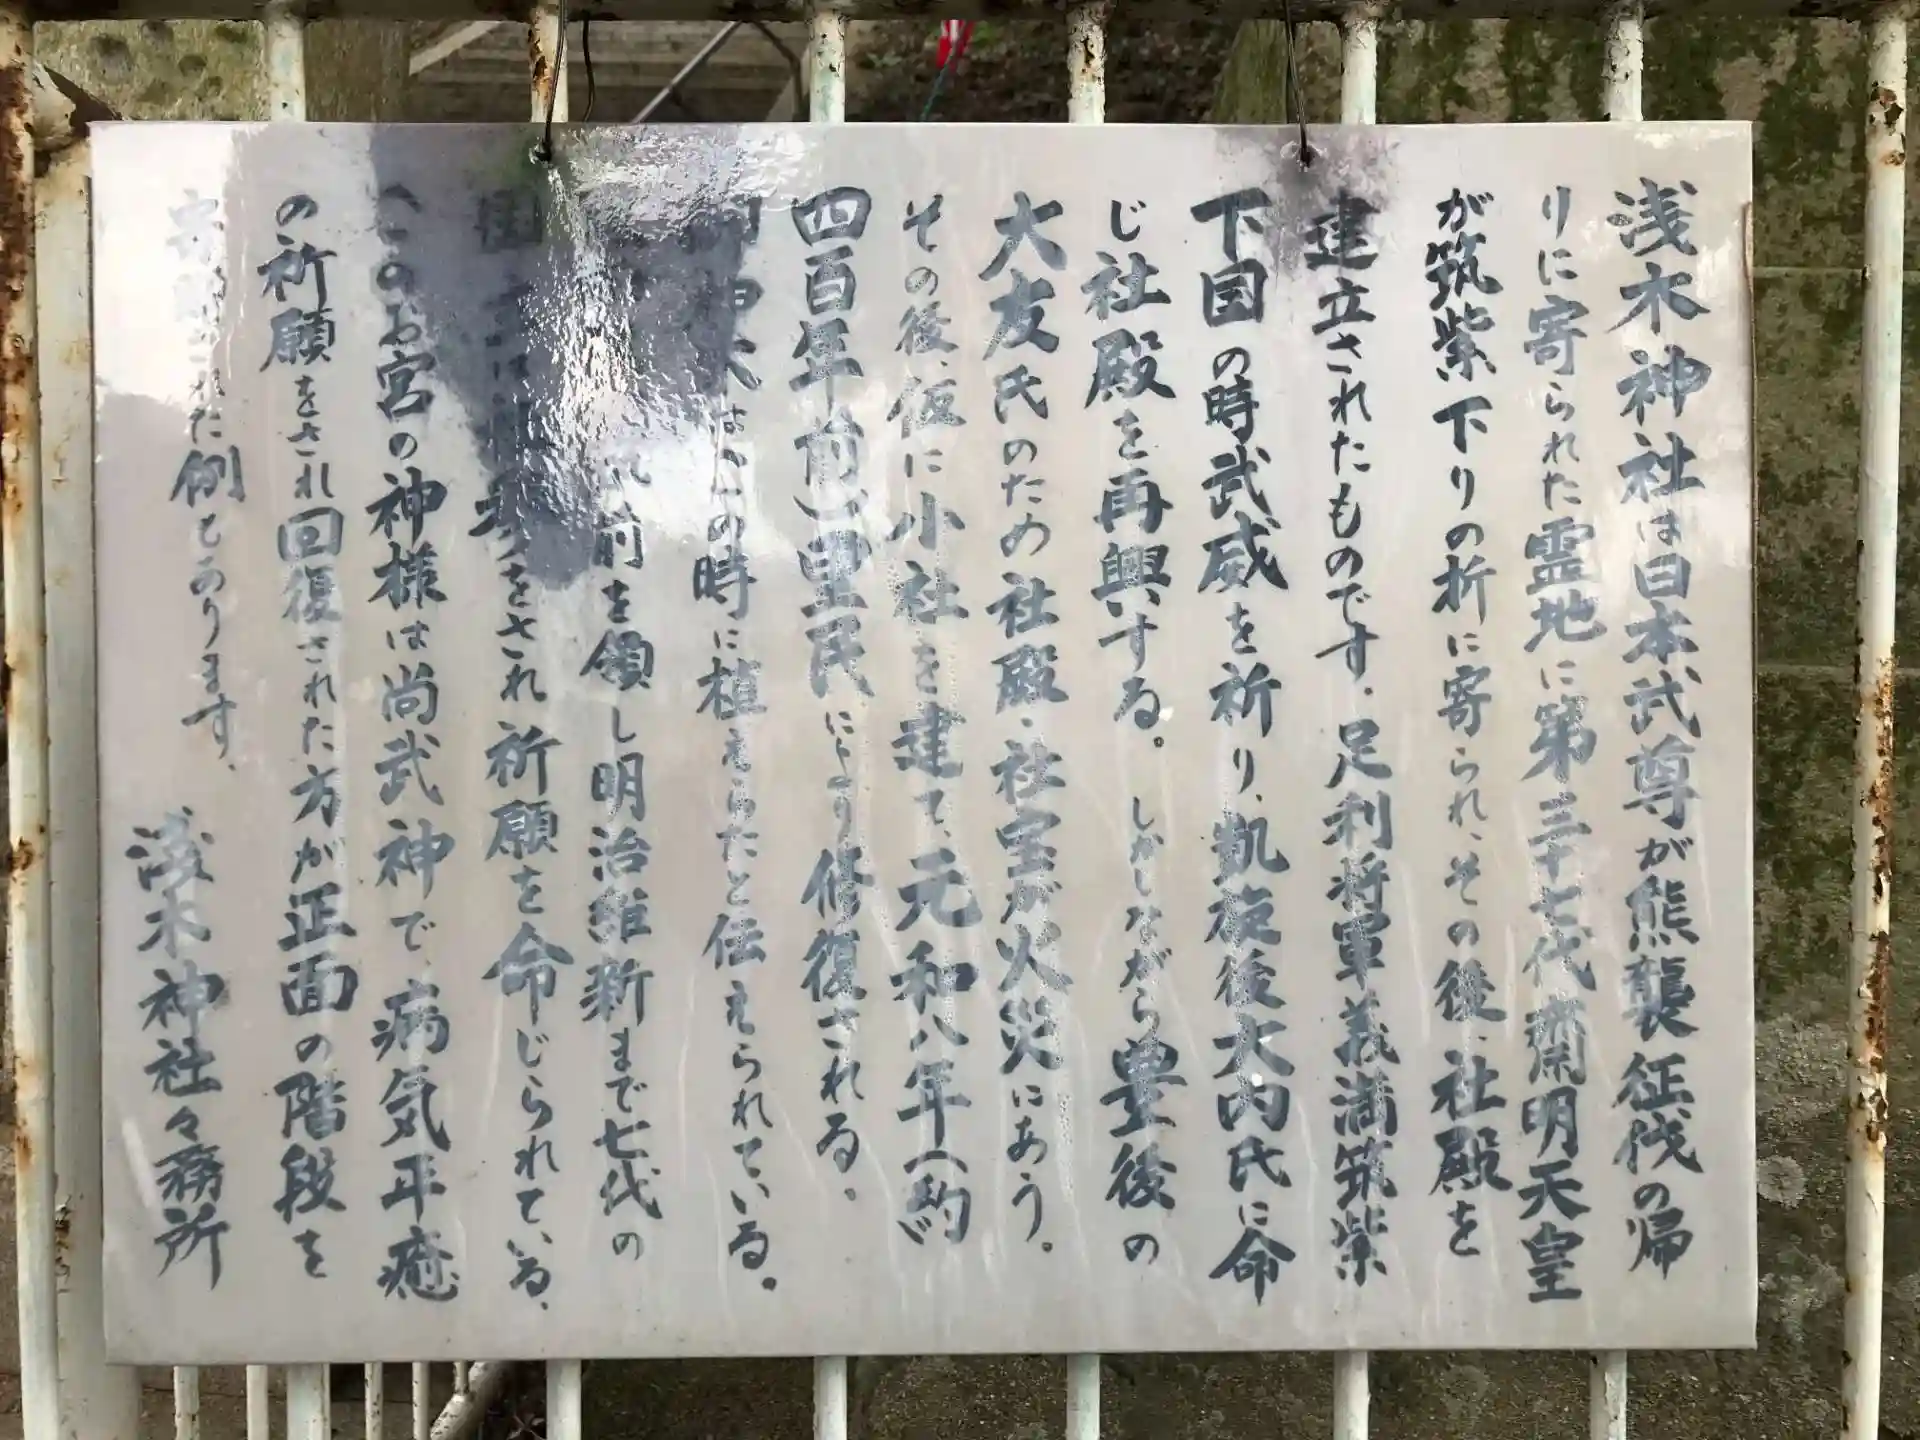 浅木神社は日本武尊が熊襲征伐の帰
りに寄られた霊地に第三十七代齋明天皇
が筑紫下りの折に寄られ、その後、社殿を
建立されたものです.足利将軍義満筑紫
下国の時武威を祈り、凱旋後大内氏に命
じ社殿を再興いする。しかしながら豊後の
大友氏のため社殿・社宝が火災にあう。
その後、仮に小社を建て、元和八年(約
四百年前)里民により修復される.
はこの時に植えらたと伝えられている。
前を領し明治維新まで七代の
をされ祈願を命じられている、
このお宮の神様は尚武神で、病気平癒
の祈願をされ回復された方が正面の階段を
れた例もあります.
浅木神社々務所